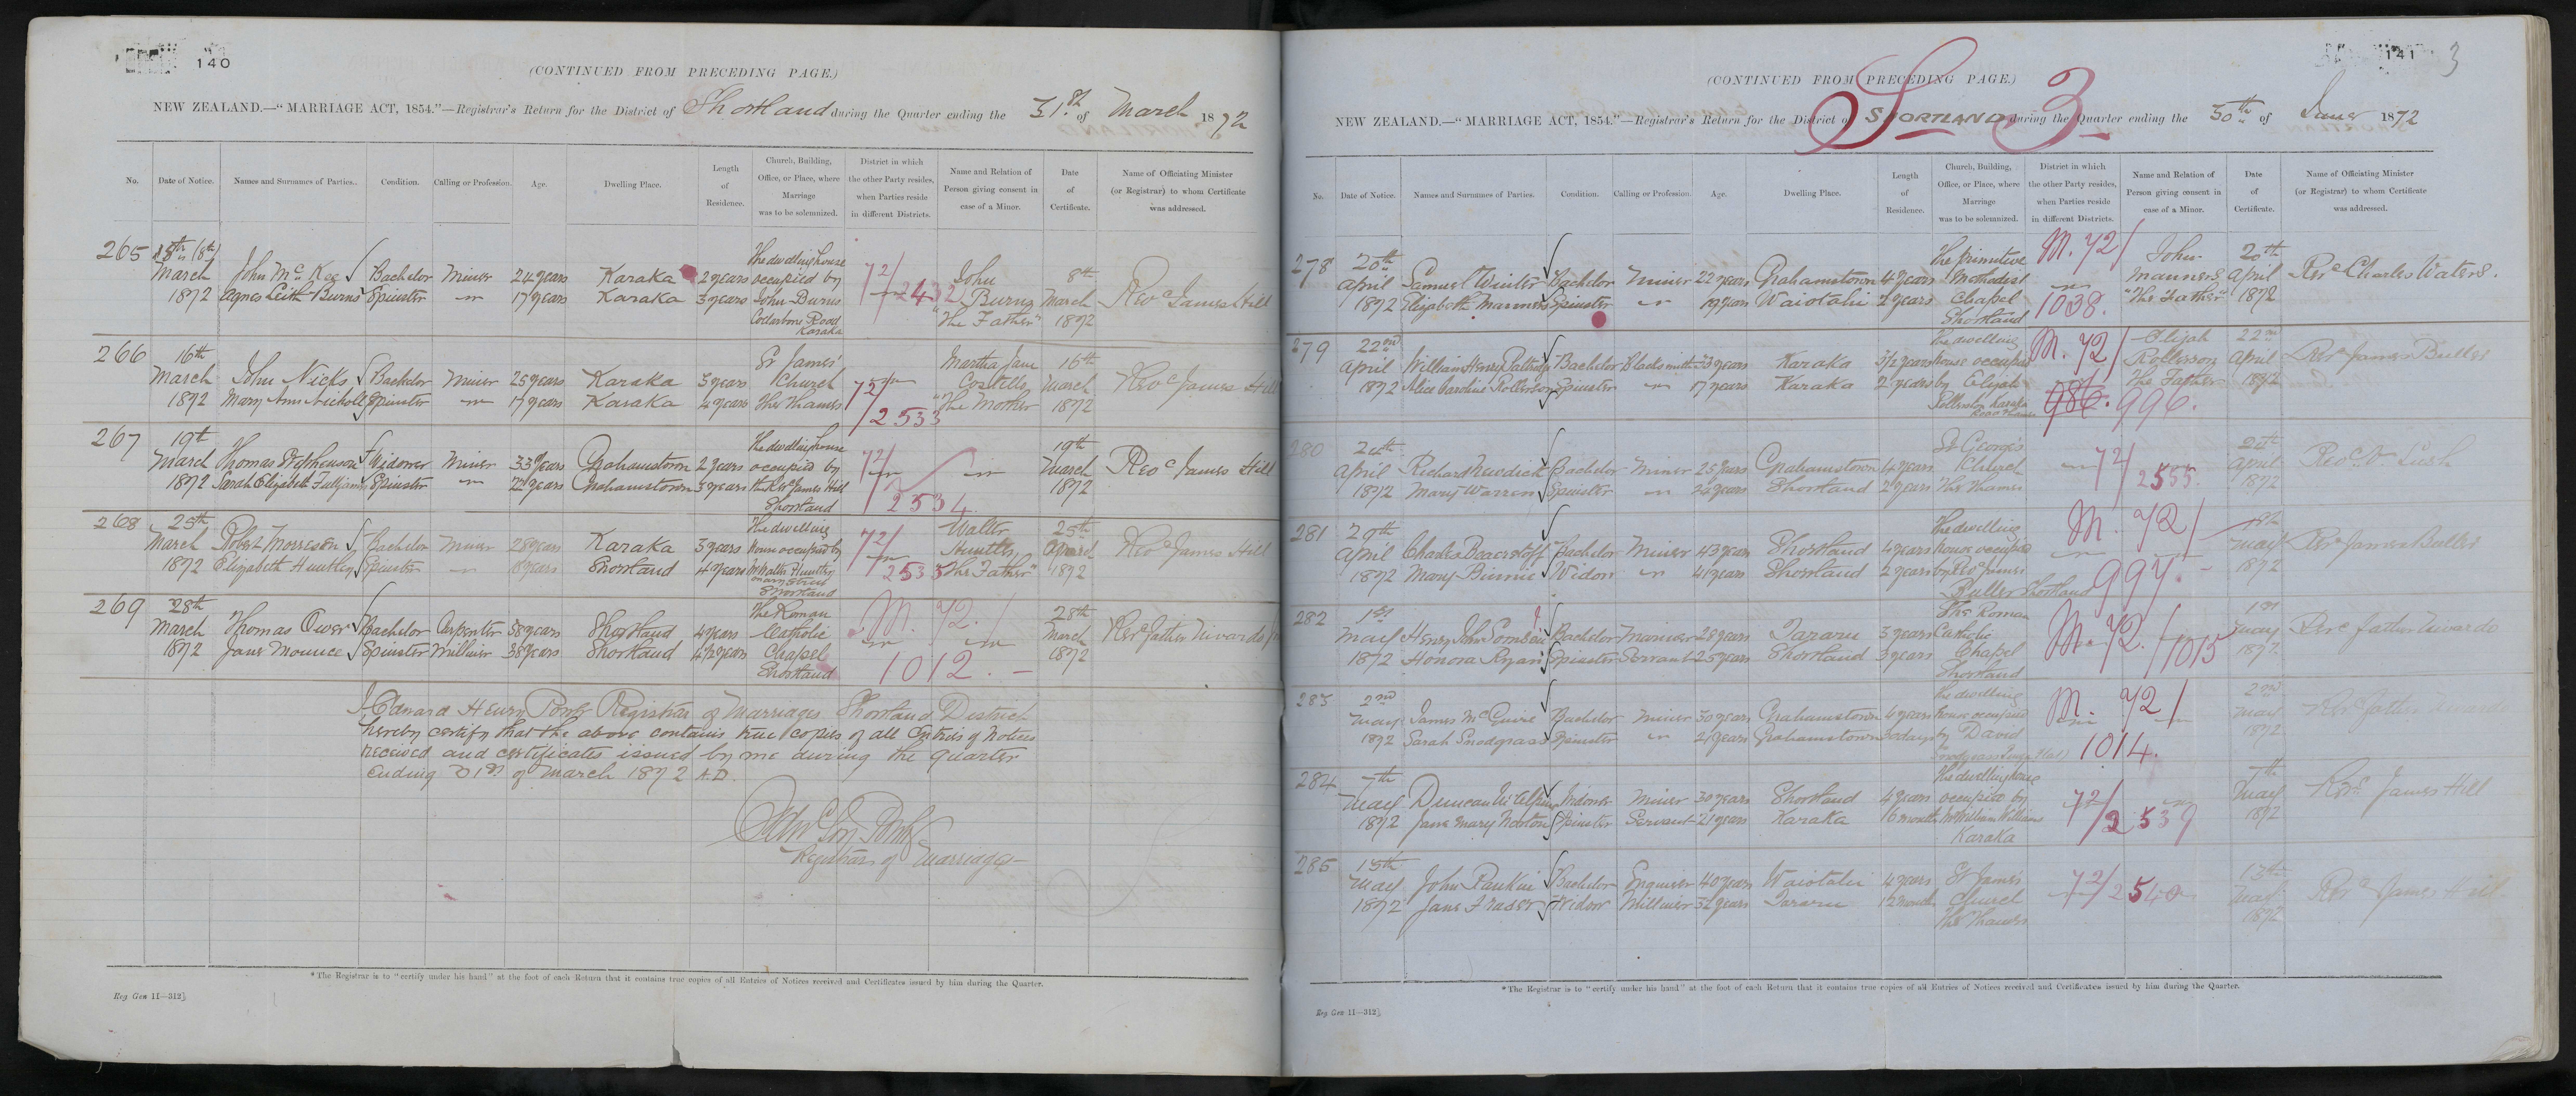 140
(CONTINUED FROM PRECEDING PAGE.)
NEW ZEALAND.—"MARRIAGE ACT, 1854."—Registrar's Return for the District of Shortland during the Quarter ending the 31st of March 1872
No. Date of Notice. Names and Surnames of Parties. Condition. Calling or Profession. Age. Dwelling Place. Length of Residence. Church, Building, Office, or Place, where Marriage was to be solemnized. District in which the other Party resides, when Parties reside in different Districts. Name and Relation of Person giving consent in case of a Minor. Date of Certificate. Name of Officiating Minister (or Registrar) to whom Certificate was addressed.
265 8th The dwelling house
March John McKee Bachelor Miner 24 years Karaka 2 years occupied by 72/ John 8th
1872 Agnes Leith Burns Spinster 17 years Karaka 3 years John Burns 2432 Burns March Revd James Hill
Collarbone Road "The Father" 1872
Karaka
266 16th St James' Martha Jane 16th
March John Nicks Bachelor Miner 25 years Karaka 3 years Church 72/ Costello March Revd James Hill
1872 Mary Ann Nicholls Spinster 17 years Karaka 4 years The Thames 2533 "The Mother" 1872
267 19th The dwelling house 19th
March Thomas Stephenson Widower Miner 33 years Grahamstown 2 years occupied by 72/ March Revd James Hill
1872 Sarah Elizabeth Fulljames Spinster 22 years Grahamstown 3 years the Revd James Hill 2534 1872
Shortland
268 25th The dwelling Walter 25th
March Robert Morreson Bachelor Miner 28 years Karaka 3 years house occupied by 72/ Huntley Revd James Hill
1872 Elizabeth Huntley Spinster 18 years Shortland 4 years Walter Huntley 2533 "The Father" 1872
Mary Street
Shortland
269 28th The Roman M. 72. 28th
March Thomas Ower Bachelor Carpenter 38 years Shortland 4 years Catholic March Revd Father Nivardo
1872 Jane Mounce Spinster Milliner 38 years Shortland 4½ years Chapel 1012. — 1872
Shortland
I Edward Henry Registrar of Marriages Shortland District
hereby certify that the above contains true copies of all Entries of Notices
received and certificates issued by me during the quarter
ending 31st of March 1872 A.D.
Registrar of Marriages
*The Registrar is to "certify under his hand" at the foot of each Return that it contains true copies of all Entries of Notices received and Certificates issued by him during the Quarter.
Reg Gen 11—312].
141 3
(CONTINUED FROM PRECEDING PAGE.)
S 3
NEW ZEALAND.—"MARRIAGE ACT, 1854."—Registrar's Return for the District of SHORTLAND during the Quarter ending the 30th of June 1872
No. Date of Notice. Names and Surnames of Parties. Condition. Calling or Profession. Age. Dwelling Place. Length of Residence. Church, Building, Office, or Place, where Marriage was to be solemnized. District in which the other Party resides, when Parties reside in different Districts. Name and Relation of Person giving consent in case of a Minor. Date of Certificate. Name of Officiating Minister (or Registrar) to whom Certificate was addressed.
278 20th The primitive M. 72/ John 20th
April Samuel Winter Bachelor Miner 22 years Grahamstown 4 years Methodist Manners April Revd Charles Waters.
1872 Elizabeth Manners Spinster 19 years Waiotahi 2 years Chapel 1038. "The Father" 1872
Shortland
279 22nd The dwelling M. 72/ Elijah 22nd
April William Henry Bachelor Blacksmith 23 years Karaka 3½ years house occupied Rollerson April Revd James Buller
1872 Alice Caroline Rollerson Spinster 17 years Karaka 2 years by Elijah 986. 996. The Father 1872
Rollerson Karaka
Road Thames
280 24th St George's 24th
April Richard Newdick Bachelor Miner 25 years Grahamstown 4 years Church 72/ April Revd V. Lush
1872 Mary Warren Spinster 24 years Shortland 2 years The Thames 2535. 1872
281 29th The dwelling M. 72/ 1st
April Charles Bachelor Miner 43 years Shortland 4 years house occupied May Revd James Buller
1872 Mary Binnie Widow 41 years Shortland 2 years by Revd James 997. 1872
Buller Shortland
282 1st The Roman 1st
May Henry John Bachelor 28 years Tararu 3 years Catholic M. 72./1015 May Revd father Nivardo
1872 Honora Ryan Spinster Servant 25 years Shortland 3 years Chapel 1872
Shortland
283 2nd The dwelling M. 72/ 2nd
May James McGuire Bachelor Miner 30 years Grahamstown 4 years house occupied May Revd father Nivardo
1872 Sarah Snodgrass Spinster 21 years Grahamstown 30 days by David 1014. 1872
Snodgrass
284 7th The dwelling house 7th
May Duncan McAlpine Widower Miner 30 years Shortland 4 years occupied by 72/ May Revd James Hill
1872 Jane Mary Newton Spinster Servant 21 years Karaka 16 months Mr William Williams 2539 1872
Karaka
285 13th St James 13th
May John Rankin Bachelor Engineer 40 years Waiotahi 4 years Church 72/2540 May Revd James Hill
1872 Jane Fraser Widow Milliner 32 years Tararu 12 months The Thames 1872
*The Registrar is to "certify under his hand" at the foot of each Return that it contains true copies of all Entries of Notices received and Certificates issued by him during the Quarter.
Reg Gen 11—312].